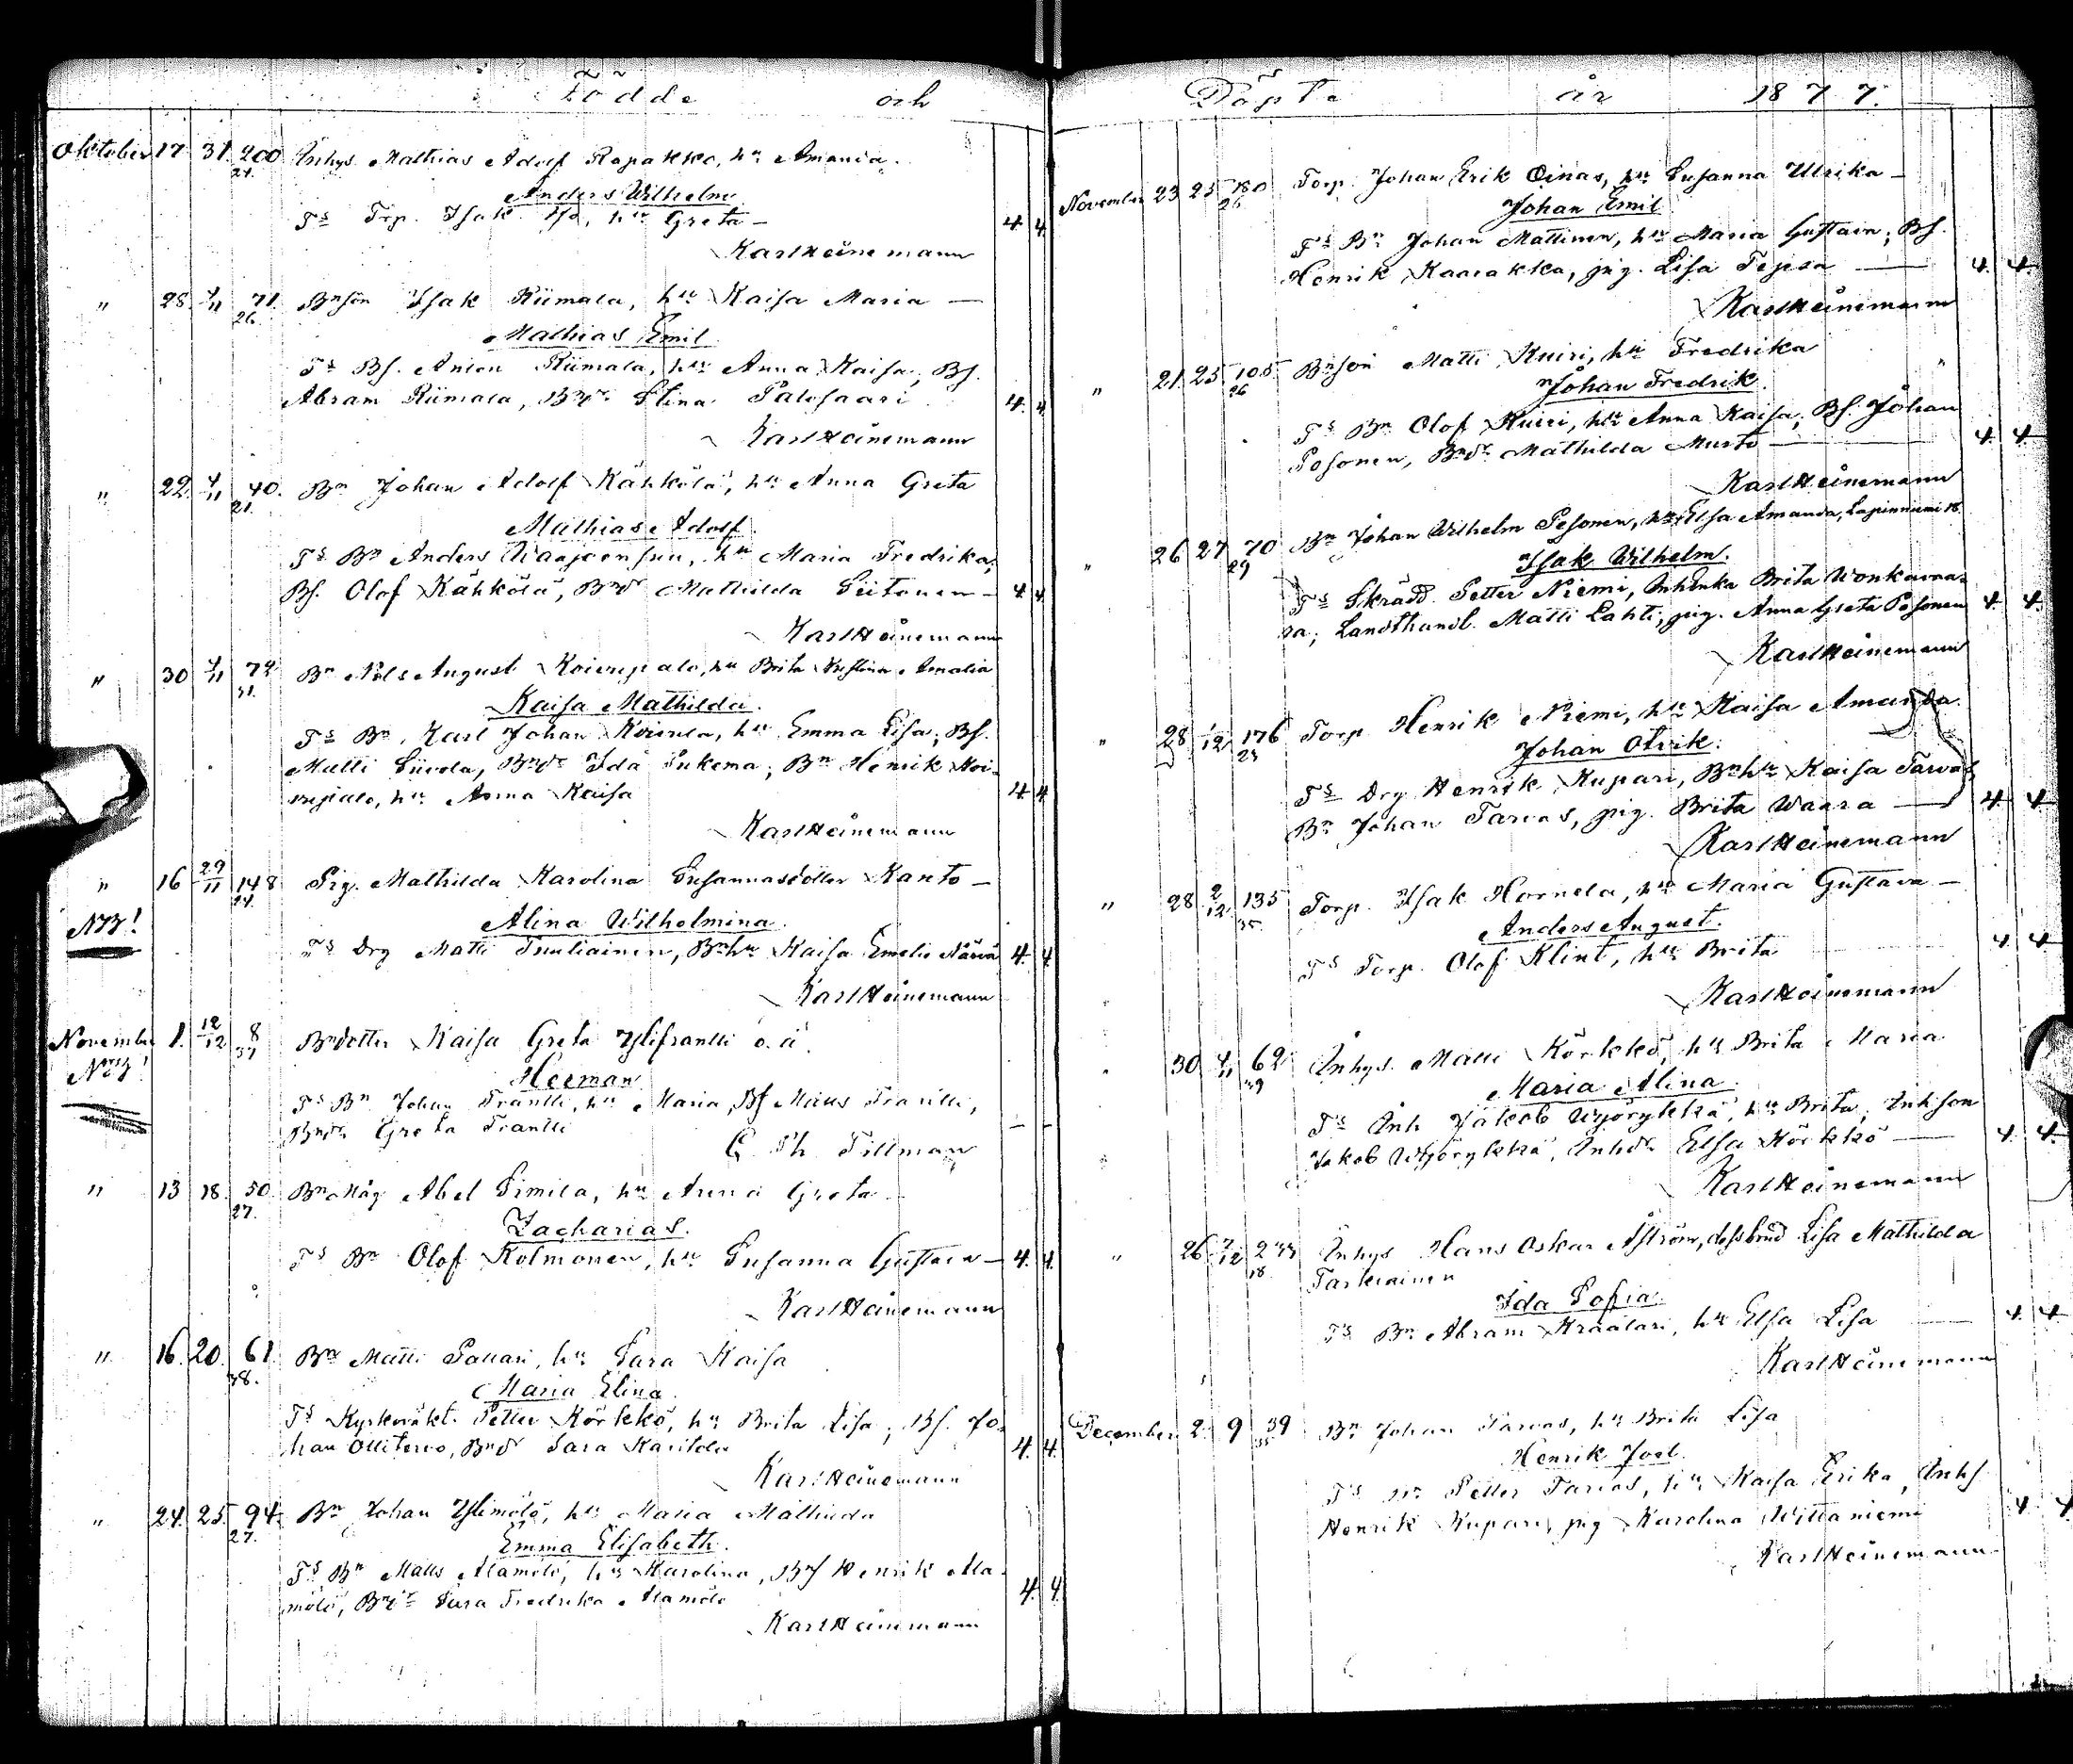 Födde och
Oktober 17 31. 200 Inhys. Mathias Adolf Rapakko, hu Amanda.
24.
Anders Wilhelm
Ts Trp. Isak hu Greta —
4. 4.
Karl Heinemann
" 28. 4/11 71. Bnson Isak Riimala, hu Kaisa Maria —
26.
Mathias Emil
Ts Bs. Anton Riimala, hu Anna Kaisa; Bs.
Abram Riimala, Bndr Stina Palosaari
4. 4
Karl Heinemann
" 22. 4/11 40. Bn Johan Adolf Kähkölä, hu Anna Greta
21.
Mathias Adolf
Ts Bn Anders hu Maria Fredrika;
Bs. Olof Kähkölä, Bndr Mathilda Piitonen —
4 4
Karl Heinemann
" 30 4/11 74. Bn Nils August hu Brita Amalia
31.
Kaisa Mathilda.
Ts Bn Karl Johan hu Emma Lisa; Bs.
Matti Bndr Ida Bn Henrik Koi-
hu Anna Kaisa
4. 4
Karl Heinemann
" 16 29/11 148 Pig. Mathilda Karolina Susannasdotter Kanto —
24.
NB! Alina Wilhelmina.
Ts Drg Matti Tuuliainen, Bnhu Kaisa Emelie Närvä
4. 4
Karl Heinemann
November 1. 12/12 8 Bndotter Kaisa Greta Ylifrantti o. ä.
37
NB! Herman
Ts Bn Johan Frantti, hu Maria, Bs Matts Frantti,
Bndr Greta Frantti
— —
C. Th. Tillman
" 13 18. 50. Bn Måg Abel Simila, hu Anna Greta
27.
Zacharias.
Ts Bn Olof Kolmonen, hu Susanna Gustava —
4. 4.
Karl Heinemann
" 16. 20. 61. Bn Matti Pallari, hu Sara Kaisa
38.
Maria Elina
Ts Kyrkovärkt. Petter Körkkö, hu Brita Lisa; Bs. Jo-
han Ollitervo, Bndr Sara Karitola
4. 4.
Karl Heinemann
" 24. 25. 94. Bn Johan Ylimölö, hu Maria Mathilda
27.
Emma Elisabeth.
Ts Bn Matts Alamölö, hu Karolina, Bns Henrik Ala-
mölö, Bndr Sara Fredrika Alamölö
4. 4.
Karl Heinemann
Döpte år 1877.
November 23 25 780 Torp. Johan Erik Oinas, hu Susanna Ulrika —
26
Johan Emil
Ts Bn Johan Mattinen, hu Maria Gustava; Bs.
Henrik Kaarakka, pig. Lisa Tepsa —
4. 4.
Karl Heinemann
" 21. 25. 105. Bnson Matti Kuiri, hu Fredrika "
26
Johan Fredrik.
Ts Bn Olof Kuiri, hu Anna Kaisa; Bs. Johan
Posonen, Bndr Mathilda Musto —
4. 4.
Karl Heinemann
" 26 27 70 Bn Johan Wilhelm Pesonen, hu Elsa Amanda, Lapinniemi 18.
29
Isak Wilhelm.
Ts Skrädd. Petter Niemi, Inhenka Brita Wonkavaa-
ra; Landthandl. Matti Lahti, pig. Anna Greta Posonen
4. 4.
Karl Heinemann
" 28. 1/12 176 Torp. Henrik Niemi, hu Kaisa Amanda.
23
Johan Olvik.
Ts Drg Henrik Kupari, Bnhu Kaisa Tarvas
Bn Johan Tarvas, pig. Brita Waara —
4. 4.
Karl Heinemann
" 28. 2/12 135 Torp. Isak Hornela, hu Maria Gustava —
35.
Anders August.
Ts Torp. Olof Klint, hu Brita
4. 4.
Karl Heinemann
" 30. 4/11 62 Inhys. Matti Körkkö, hu Brita Maria
39
Maria Alina.
Ts Inh Jakob hu Brita, Inhson
Jakob Inhdr Elsa Körkkö —
4. 4.
Karl Heinemann
" 26. 7/12 Inhys Hans Oskar Åström, dess brud Lisa Mathilda
18.
Tarkiainen
Ida Sofia.
Ts Bn Abram hu Elsa Lisa —
4. 4.
Karl Heinemann
December 2. 9 39 Bn Johan Tarvas, hu Brita Lisa
35
Henrik Joel.
Ts Bn Petter Tarvas, hu Kaisa Erika, Inhs.
Henrik Kupari, pig Karolina Wittaniemi
4. 4
Karl Heinemann